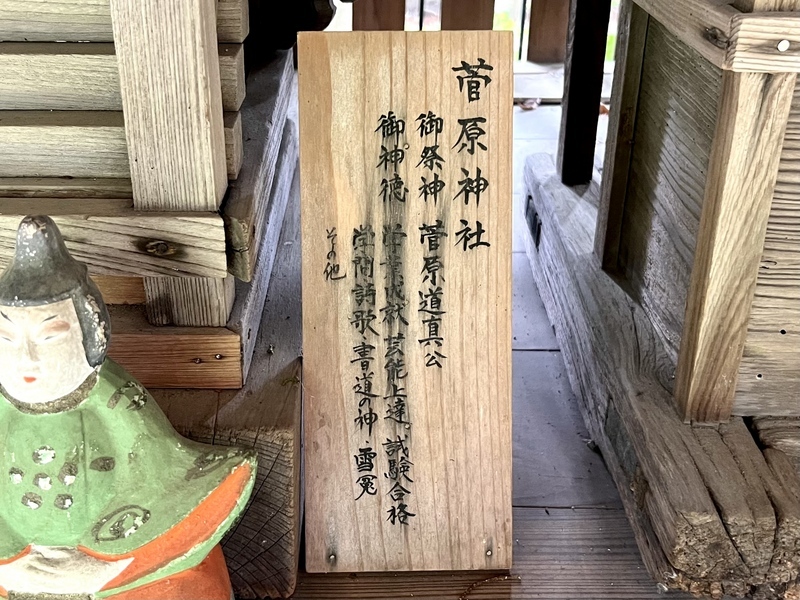 菅原神社
御祭神 菅原道真公
御神徳 学業成就 芸能上達 試験合格
学問 詩歌・書道の神・雪冤
その他